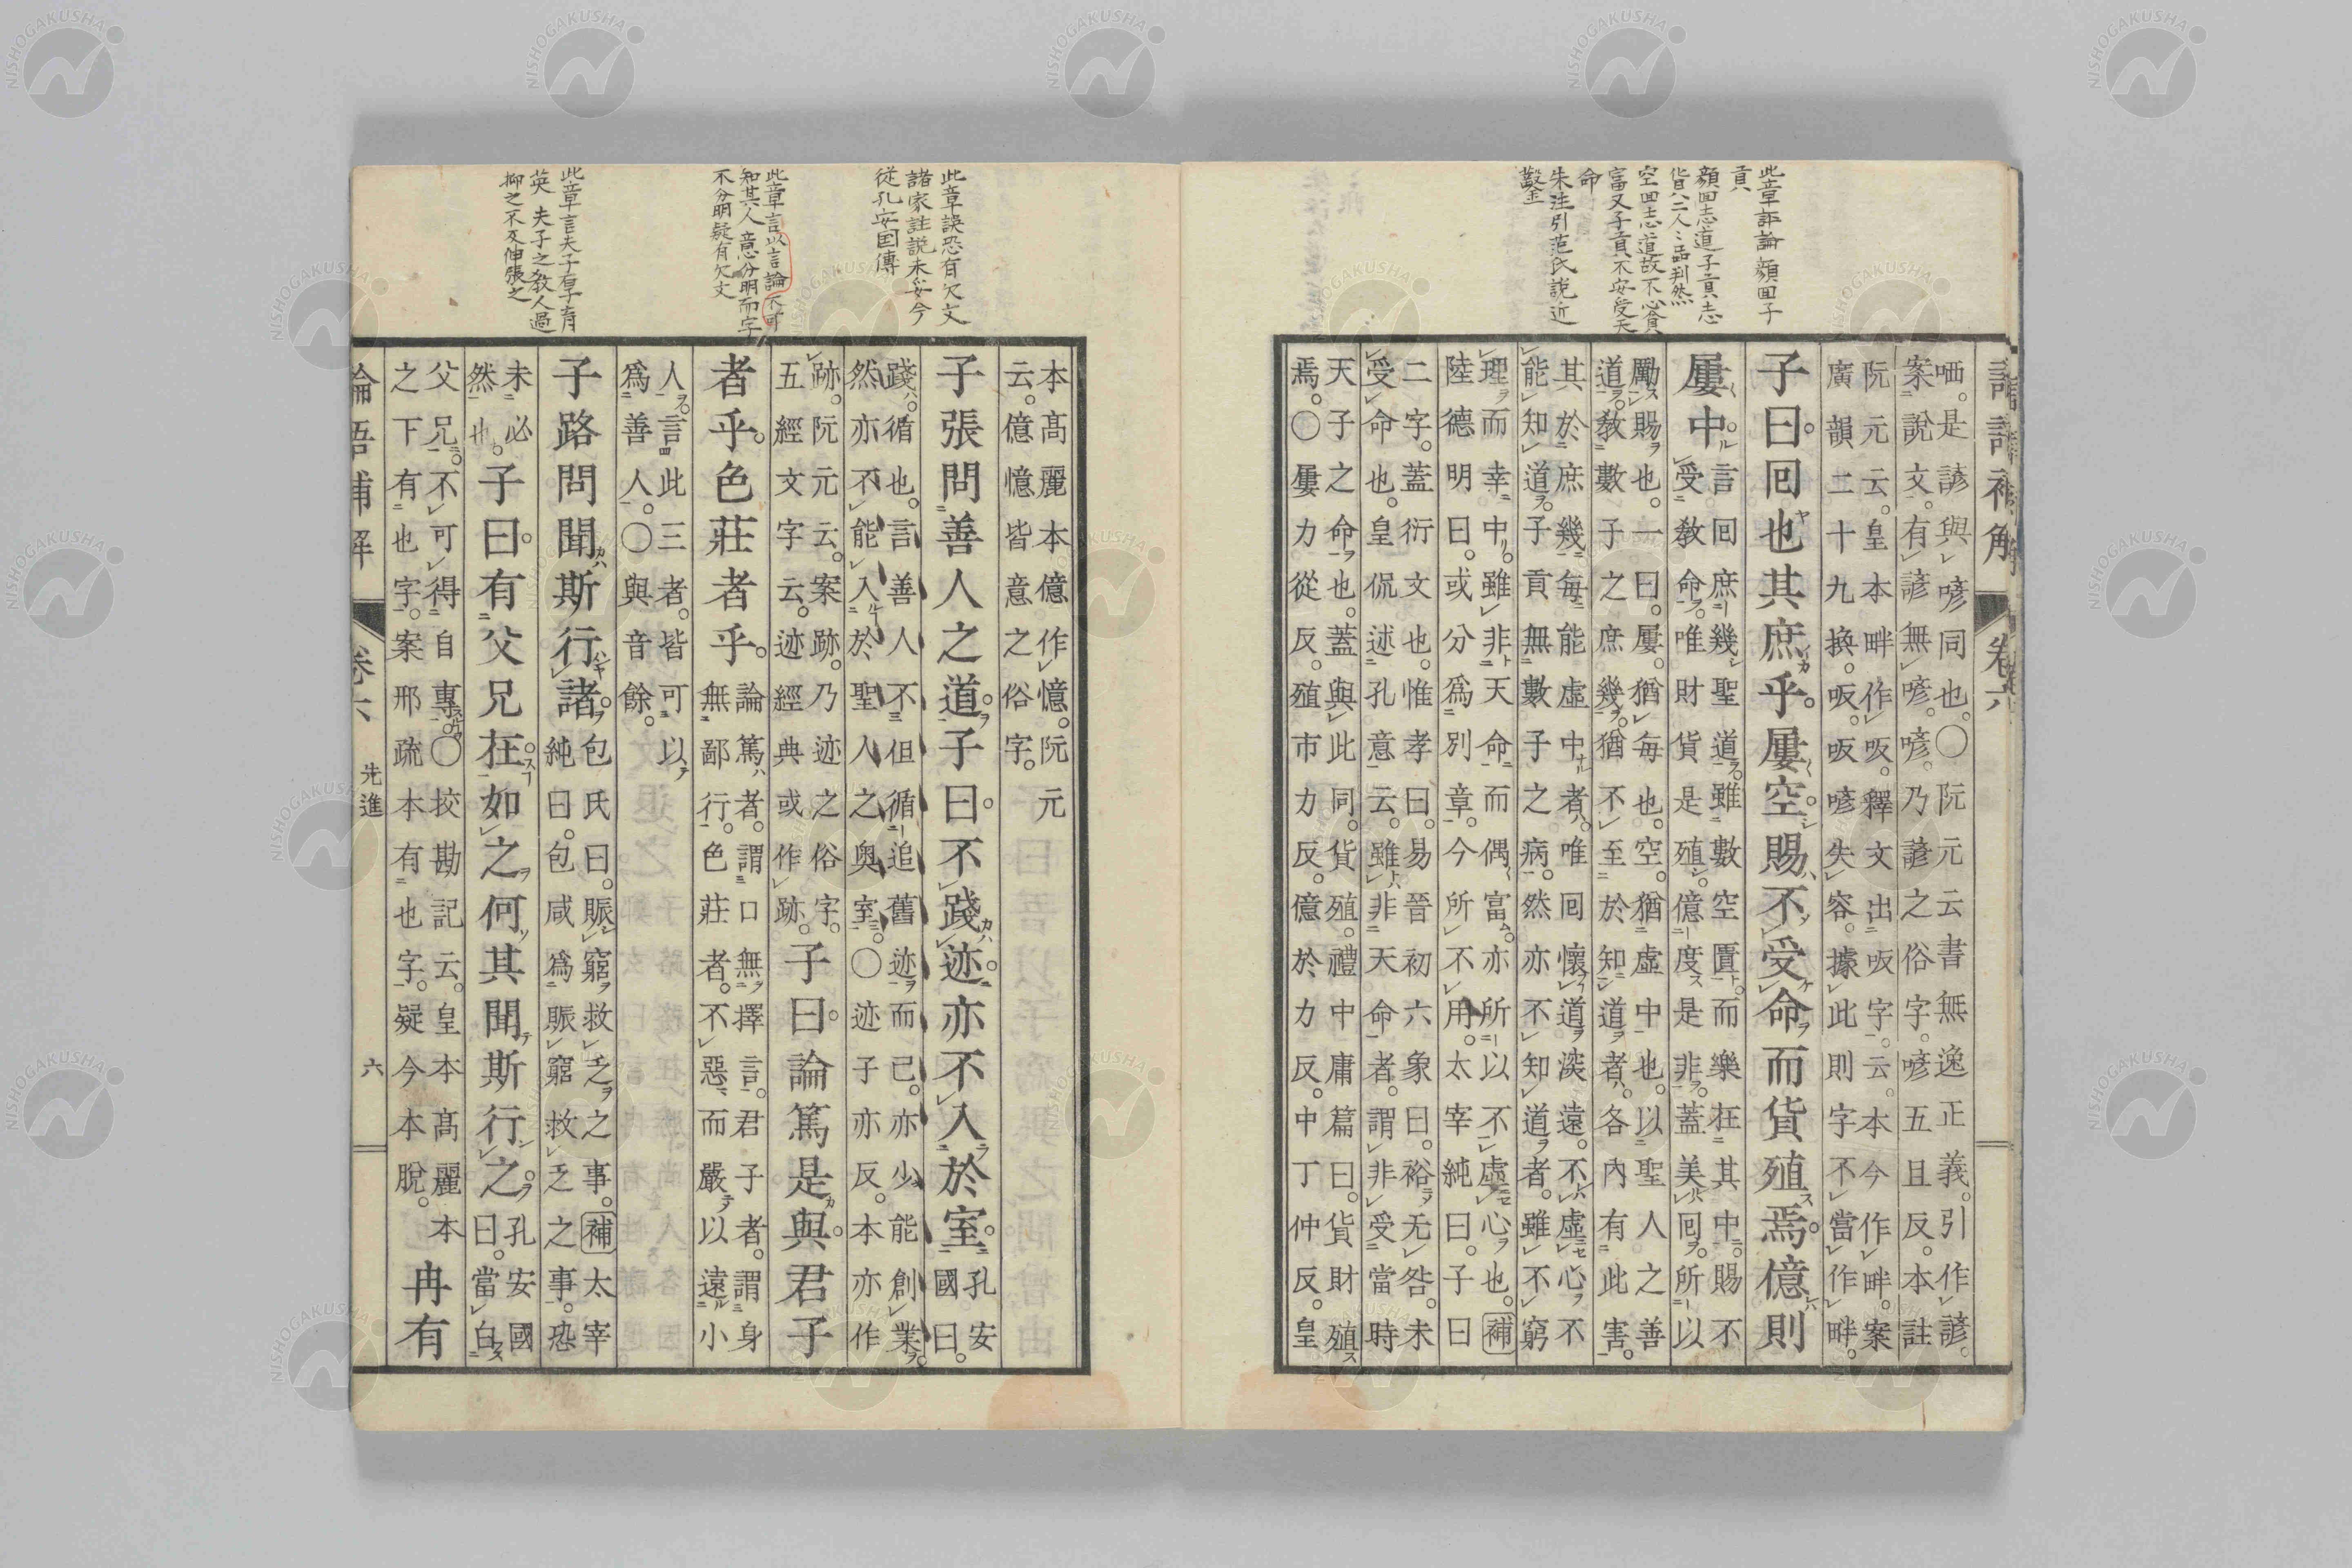 此章評論顏回子
貢
顏回志道子貢志
貨二人之品判然
空回志道故不心貧
富又子貢不安受天
命
朱注引范氏說近
鑿
卷六
哂。是諺與喭同也。〇阮元云書無逸正義。引作諺。
案說文。有諺無喭。喭乃諺之俗字。喭五且反。本註
阮元云。皇本畔作㕫。釋文出㕫字。云。本今作畔。案
廣韻二十九換。㕫。㕫喭失容。據此則字不當作畔。
子曰。回也其庶乎。屢空。賜不受命而貨殖焉。億則
屢中。
言回庶幾聖道。雖數空匱。而樂在其中。賜不
受教命。唯財貨是殖。億度是非。蓋美回。所以
勵賜也。一曰。屢。猶每也。空。猶虛中也。以聖人之善
道。敎數子之庶幾。猶不至於知道者。各內有此害。
其於庶幾每能虛中者。唯回懷道深遠。不虛心不
能知道。子貢無數子之病。然亦不知道者。雖不窮
理而幸中。雖非天命而偶富。亦所以不虛心也。補
陸德明曰。或分爲別章。今所不用。太宰純曰。子曰
二字。蓋衍文也。惟孝曰。易晉初六象曰。裕无咎。未
受命也。皇侃述孔意云。雖非天命者。謂非受當時
天子之命也。蓋與此同。貨殖。禮中庸篇曰。貨財殖
焉。〇屢力從反。殖市力反。億於力反。中丁仲反。皇
此章誤恐有欠文
諸家註說未妥今
從孔安国傳
此章言以言論不可
知其人意分明而字
不分明疑有欠文
此章言夫子有育
英 夫子之教人過
抑之不及伸張之
本高麗本億作憶。阮元
云。億憶皆意之俗字。
子張問善人之道。子曰。不踐迹。亦不入於室。
孔安
國曰。
踐。循也。言善人不但循追舊迹而已。亦少能創業。
然亦不能入於聖人之奧室。〇迹子亦反。本亦作
跡。阮元云。案跡乃迹之俗字。
五經文字云。迹經典或作跡。
子曰。論篤是與。君子
者乎。色莊者乎。
論篤者。謂口無擇言。君子者。謂身
無鄙行。色莊者。不惡而嚴以遠小
人。言此三者。皆可以
爲善人。〇與音餘。
子路問聞斯行諸。
包氏曰。賑窮救乏之事。補太宰
純曰。包咸爲賑窮救乏之事。恐
未必
然也。
子曰。有父兄在。如之何其聞斯行之。
孔安國
曰。當白
父兄。不可得自專。〇挍勘記云。皇本高麗本
之下有也字。案邢疏本有也字。疑今本脫。
冉有
論語補解
卷六
先進
六